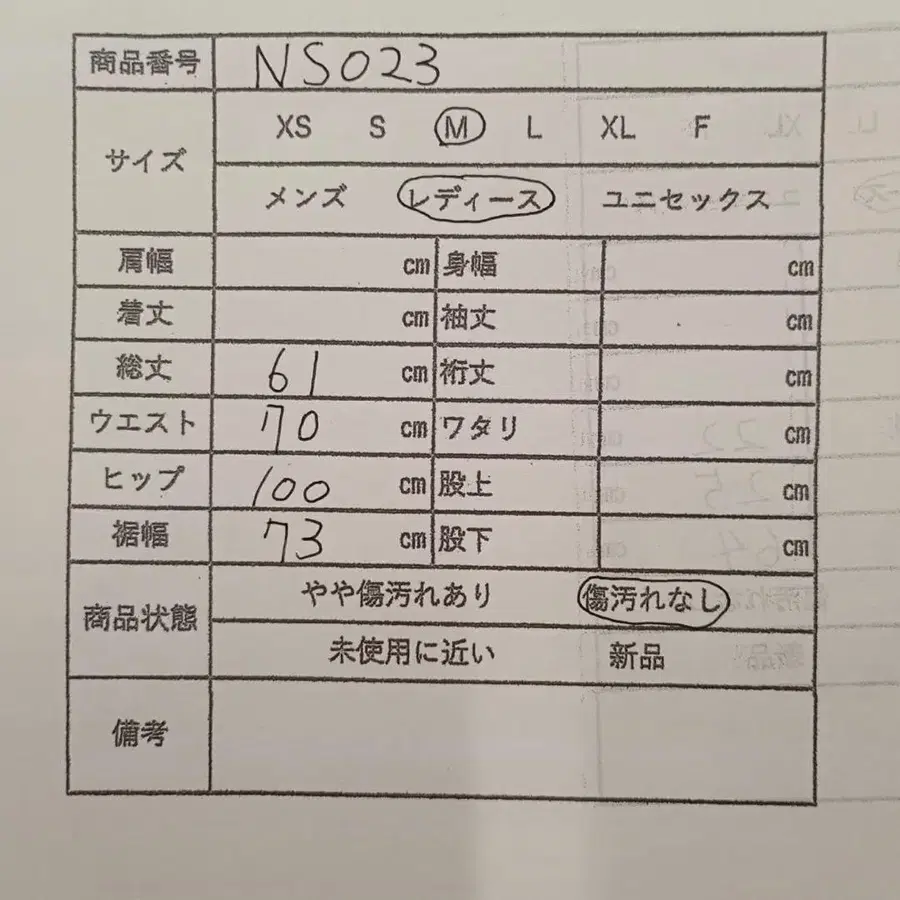 商品番号 NS023
サイズ XS S M L XL F
メンズ レディース ユニセックス
肩幅 cm 身幅 cm
着丈 cm 袖丈 cm
総丈 61 cm 裄丈 cm
ウエスト 70 cm ワタリ cm
ヒップ 100 cm 股上 cm
裾幅 73 cm 股下 cm
商品状態 やや傷汚れあり 傷汚れなし
未使用に近い 新品
備考